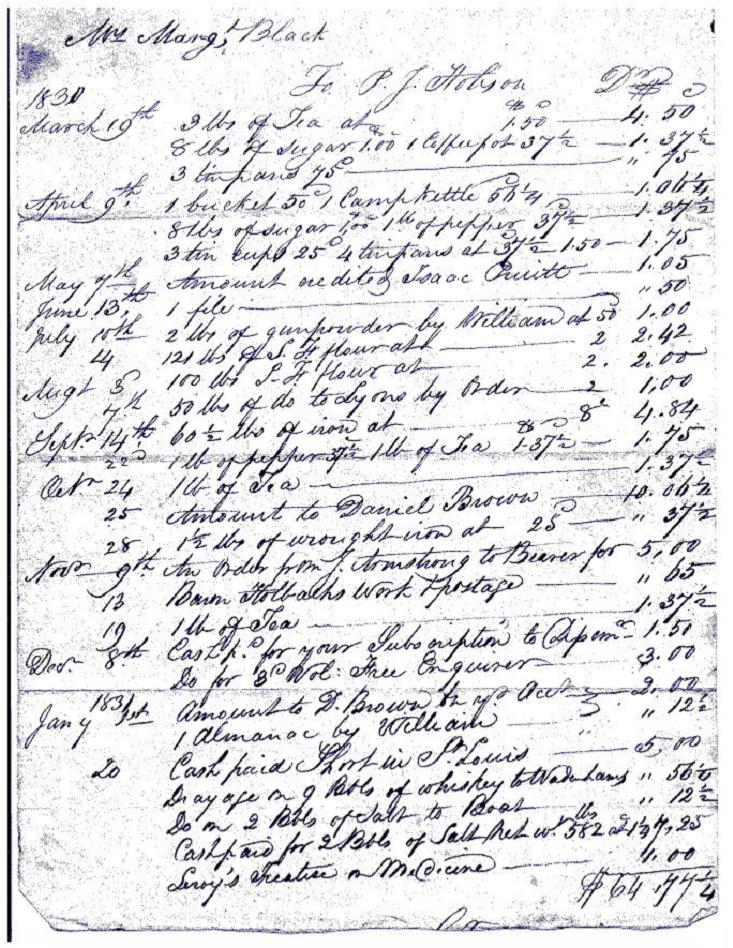 Mrs Margt Black
To P. J. Hobson Dr
1830 $ c
March 19th 3 lbs of Tea at 1.50 — 4.50
8 lbs of sugar 1.00 1 Coffee pot 37½ — 1.37½
3 tin pans 75c — " 75
April 9th 1 bucket 50c 1 Camp Kettle 56¼ — 1.06¼
8 lbs of sugar 1.00 1 lb of pepper 37½ — 1.37½
3 tin cups 25c 4 tin pans at 37½ 1.50 — 1.75
May 7th Amount credited Isaac Pruitt — 1.05
June 13th 1 file — " 50
July 10th 2 lbs of gunpowder by William at 50 1.00
14 121 lbs of S. F flour at — 2 2.42
Augt 3 100 lbs S. F. flour at — 2. 2.00
7th 50 lbs of do to Lyons by Order — 2 1.00
Septr 14th 60½ lbs of iron at — 8c 4.84
22 1 lb of pepper 37½ 1 lb of Tea 1.37½ — 1.75
Octr 24 1 lb of Tea — 1.37½
25 Amount to Daniel Brown — 10.06¼
28 1½ lbs of wrought iron at 25c — " 37½
Novr 9th An Order from J. Armstrong to Beaver for 5.00
13 Baron Holbachs Work & postage — " 65
19 1 lb of Tea — 1.37½
Decr 8th Cash pd for your Subscription to — 1.50
Do for 3d Vol: Free Enquirer — 3.00
1831
Jany 1st Amount to D. Brown on yr Acct — 2.00
1 Almanac by William — " " 12½
20 Cash paid Short in St Louis — 5.00
Drayage on 9 Bbls of whiskey to Wadenhams " 56¼
Do on 2 Bbls of Salt to Boat — " 12½
Cash paid for 2 Bbls of Salt Net wt 582 lbs at 1¼ 7.25
Leroy's Treatise on Medicine — 1.00
$ 64.77¼